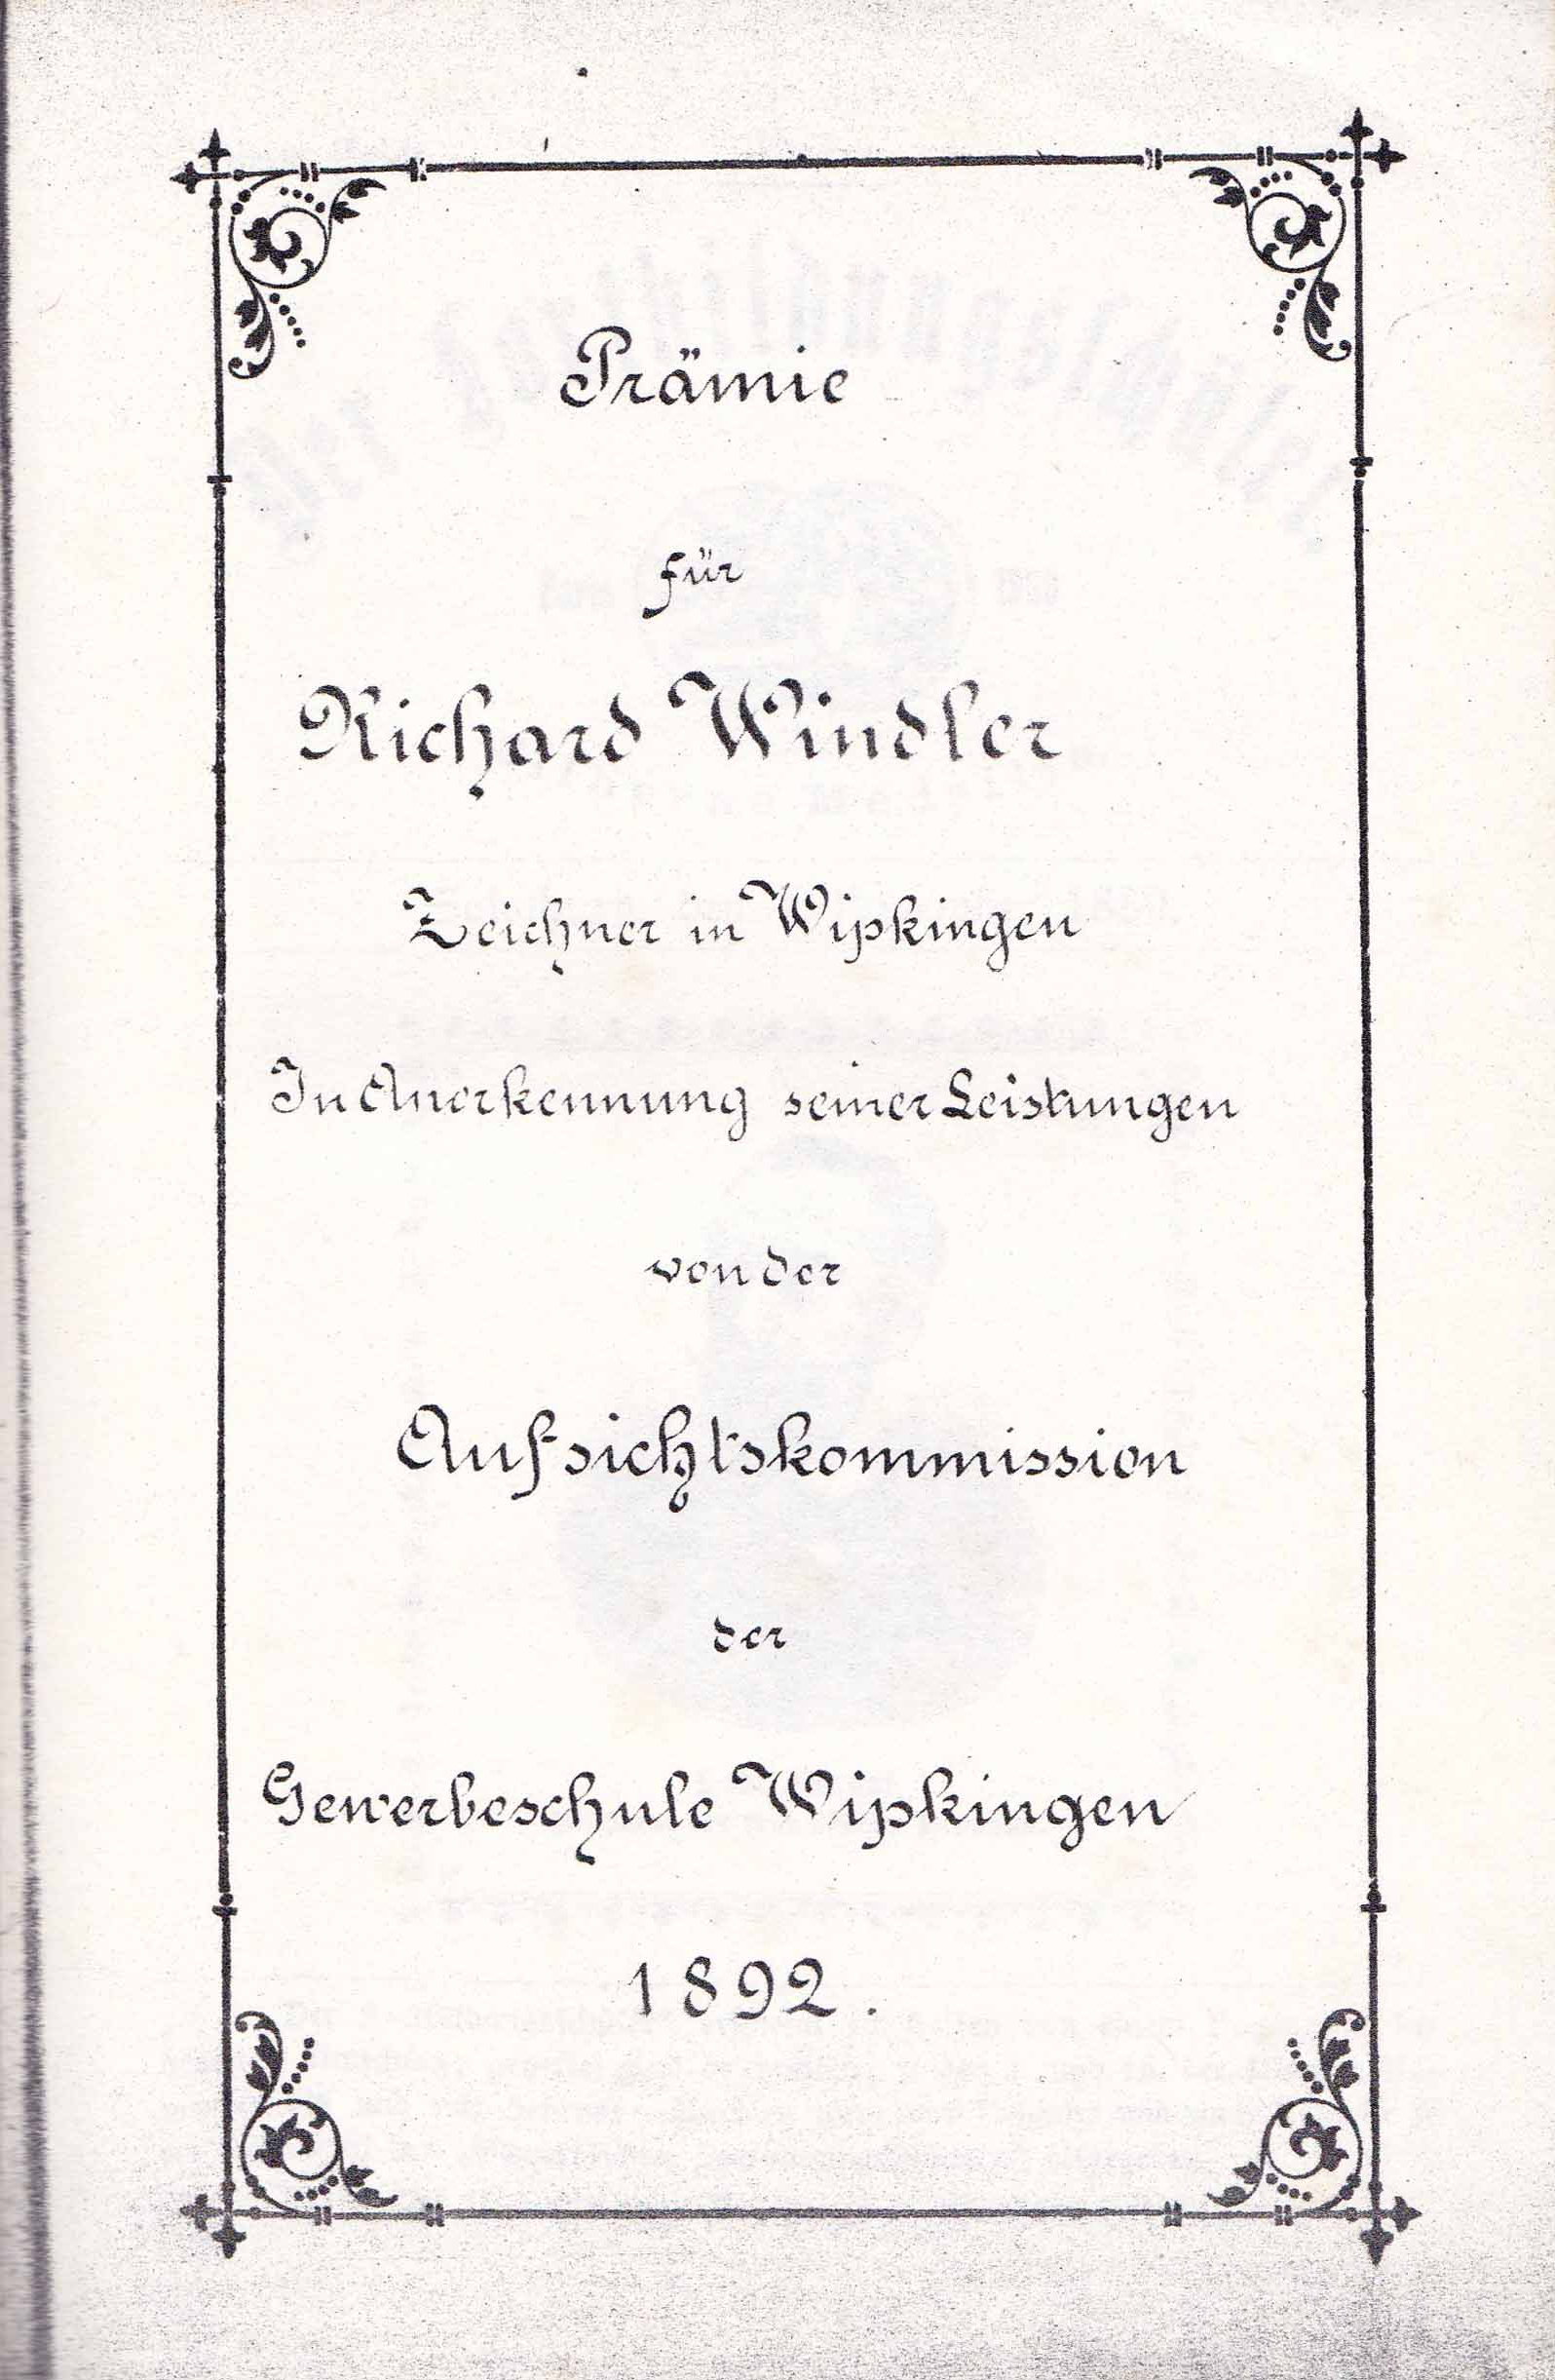 Prämie
für
Richard Windler
Zeichner in Wipkingen
In Anerkennung seiner Leistungen
von der
Aufsichtskommission
der
Gewerbeschule Wipkingen
1892.